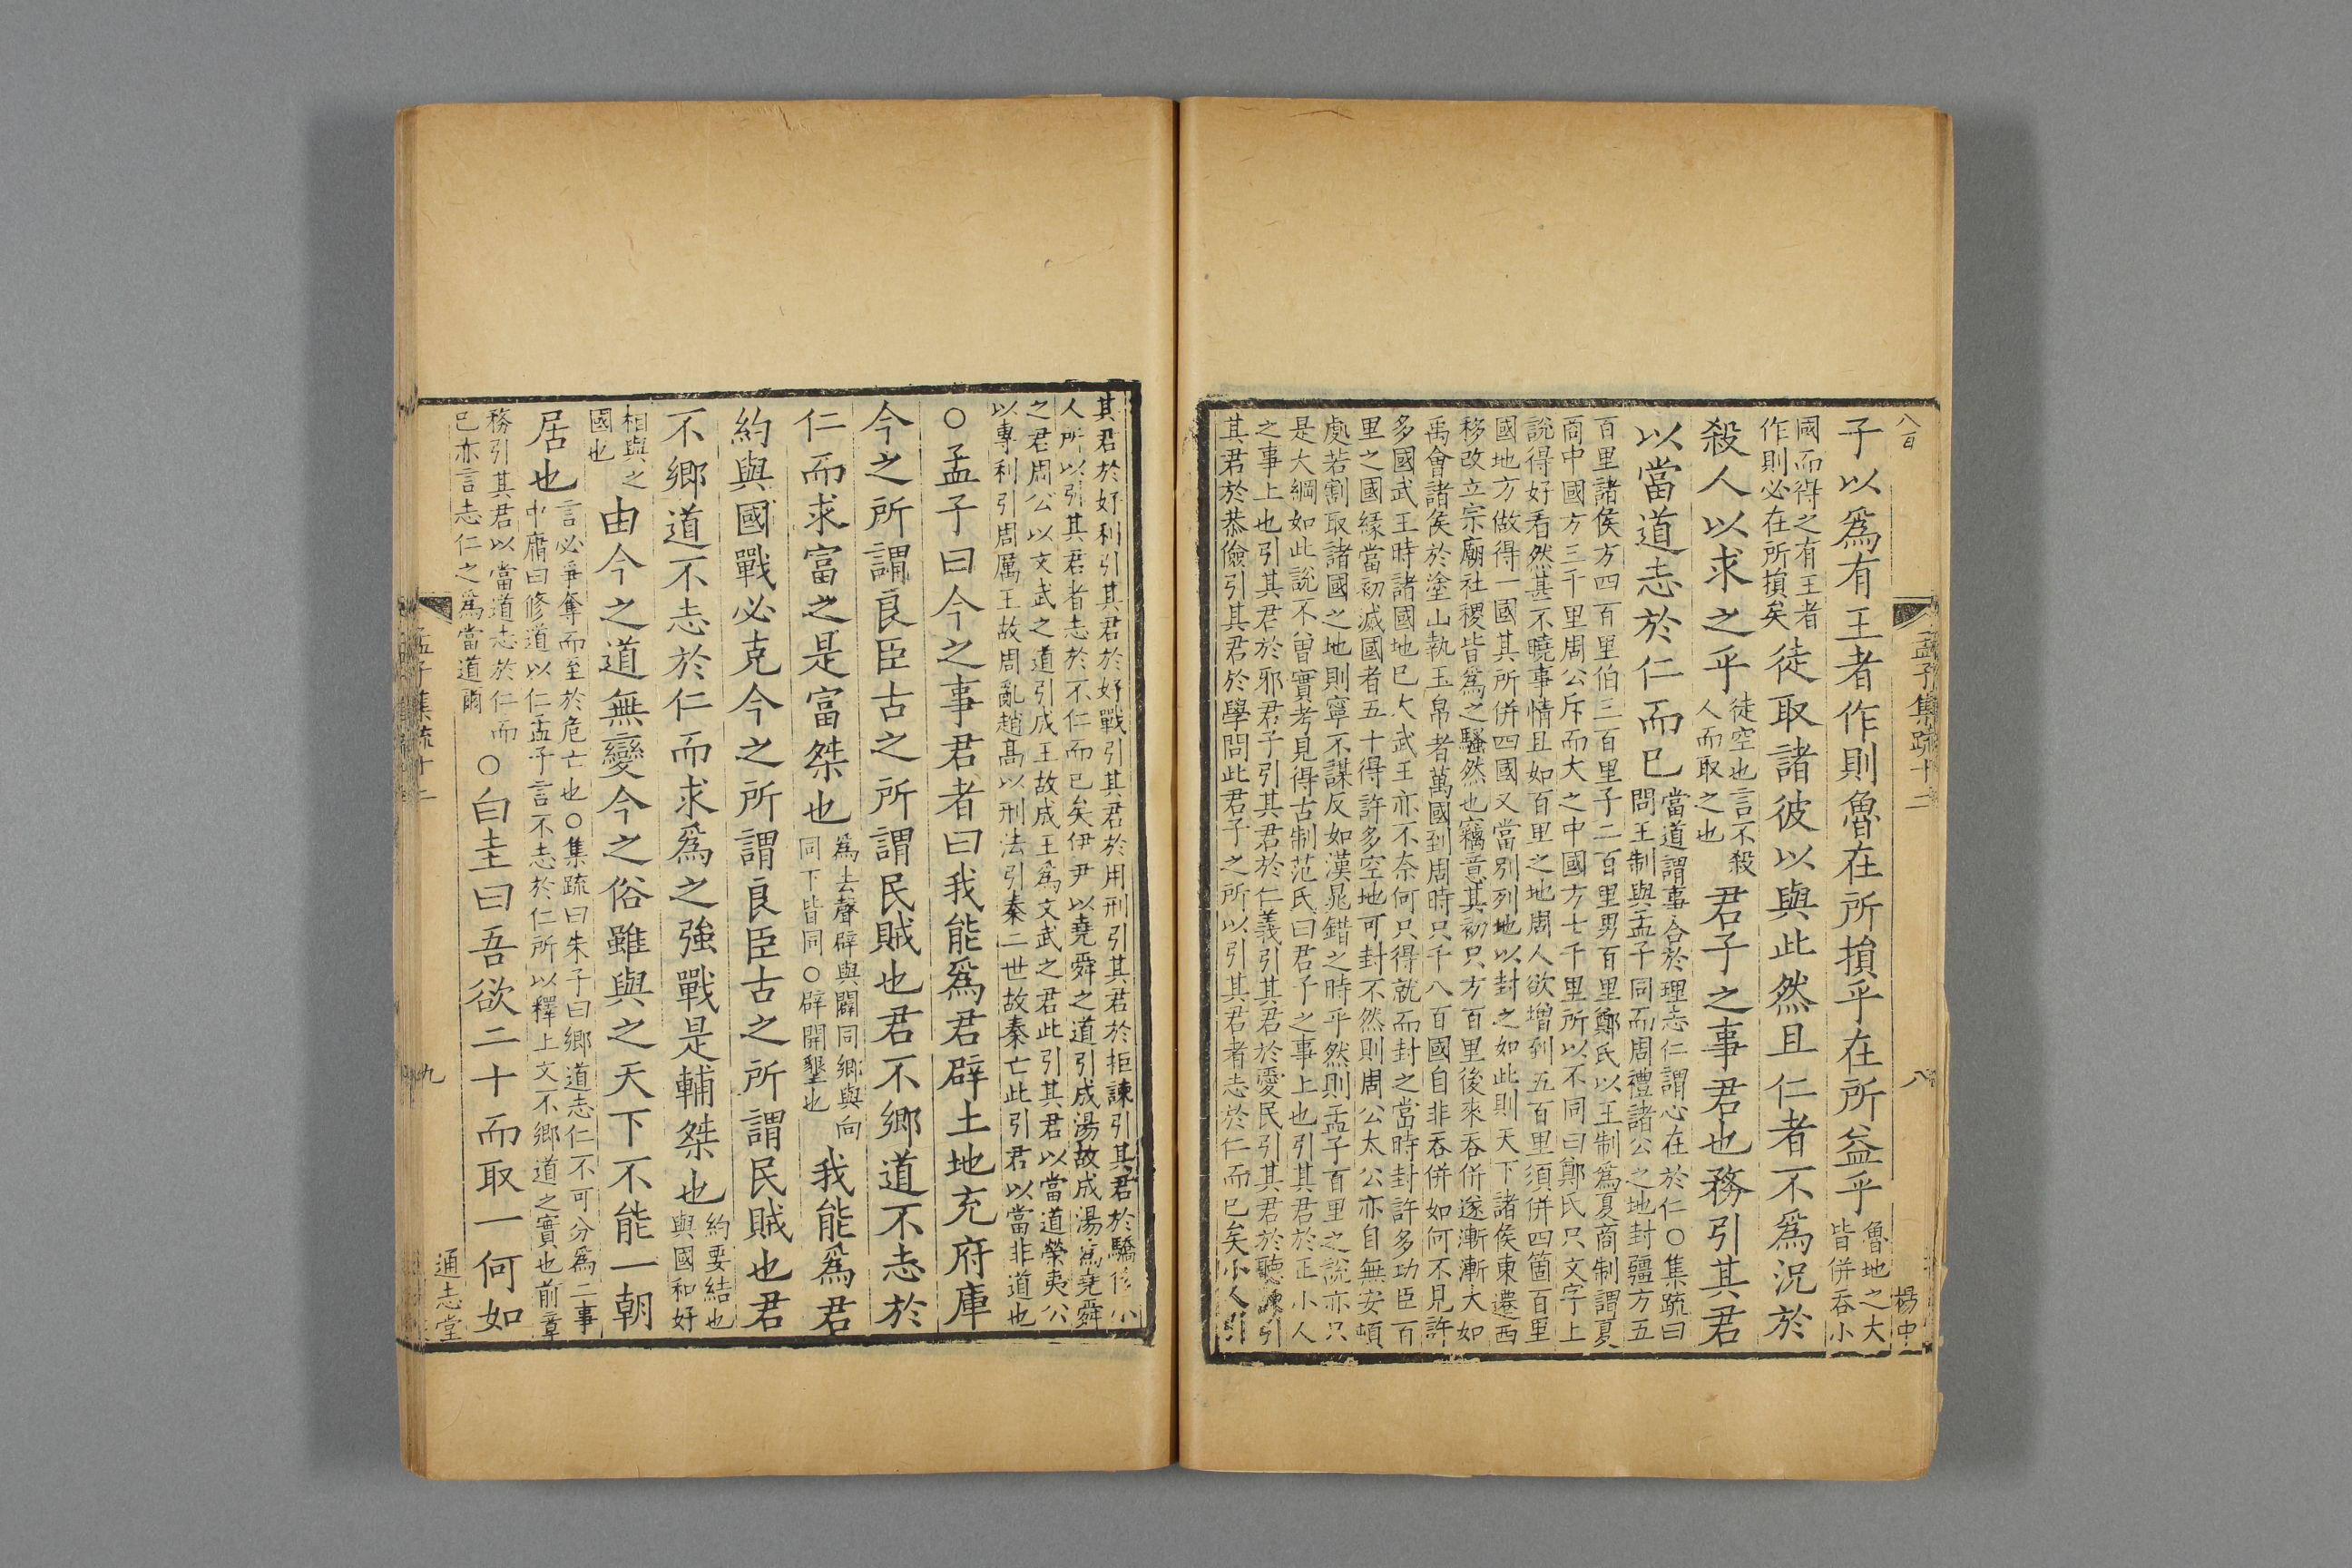 八百
孟子集疏十二
八
楊中
子以爲有王者作則魯在所損乎在所益乎魯地之大
皆併吞小
國而得之有王者
作則必在所損矣徒取諸彼以與此然且仁者不爲況於
殺人以求之乎徒空也言不殺
人而取之也君子之事君也務引其君
以當道志於仁而已當道謂事合於理志仁謂心在於仁○集疏曰
問王制與孟子同而周禮諸公之地封疆方五
百里諸侯方四百里伯三百里子二百里男百里鄭氏以王制爲夏商制謂夏
商中國方三千里周公斥而大之中國方七千里所以不同曰鄭氏只文字上
說得好看然甚不曉事情且如百里之地周人欲增到五百里須併四箇百里
國地方做得一國其所併四國又當別列地以封之如此則天下諸侯東遷西
移改立宗廟社稷皆爲之騷然也竊意其初只方百里後來吞併遂漸漸大如
禹會諸侯於塗山執玉帛者萬國到周時只千八百國自非吞併如何不見許
多國武王時諸國地已大武王亦不奈何只得就而封之當時封許多功臣百
里之國緣當初滅國者五十得許多空地可封不然則周公太公亦自無安頓
處若割取諸國之地則寧不謀反如漢晁錯之時乎然則孟子百里之說亦只
是大綱如此說不曾實考見得古制范氏曰君子之事上也引其君於正小人
之事上也引其君於邪君子引其君於仁義引其君於愛民引其君於聽諫引
其君於恭儉引其君於學問此君子之所以引其君者志於仁而已矣小人引
其君於好利引其君於好戰引其君於用刑引其君於拒諫引其君於驕侈小
人所以引其君者志於不仁而已矣伊尹以堯舜之道引成湯故成湯爲堯舜
之君周公以文武之道引成王故成王爲文武之君此引其君以當道榮夷公
以專利引周厲王故周亂趙高以刑法引秦二世故秦亡此引君以當非道也
○孟子曰今之事君者曰我能爲君辟土地充府庫
今之所謂良臣古之所謂民賊也君不鄉道不志於
仁而求富之是富桀也爲去聲辟與闢同鄉與向
同下皆同○辟開墾也我能爲君
約與國戰必克今之所謂良臣古之所謂民賊也君
不鄉道不志於仁而求爲之強戰是輔桀也約要結也
與國和好
相與之
國也由今之道無變今之俗雖與之天下不能一朝
居也言必爭奪而至於危亡也○集疏曰朱子曰鄉道志仁不可分爲二事
中庸曰修道以仁孟子言不志於仁所以釋上文不鄉道之實也前章
務引其君以當道志於仁而
已亦言志仁之爲當道爾○白圭曰吾欲二十而取一何如
孟子集疏十二
九
通志堂